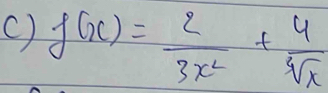 c) f(x) = 2/(3x²) + 4/∛x